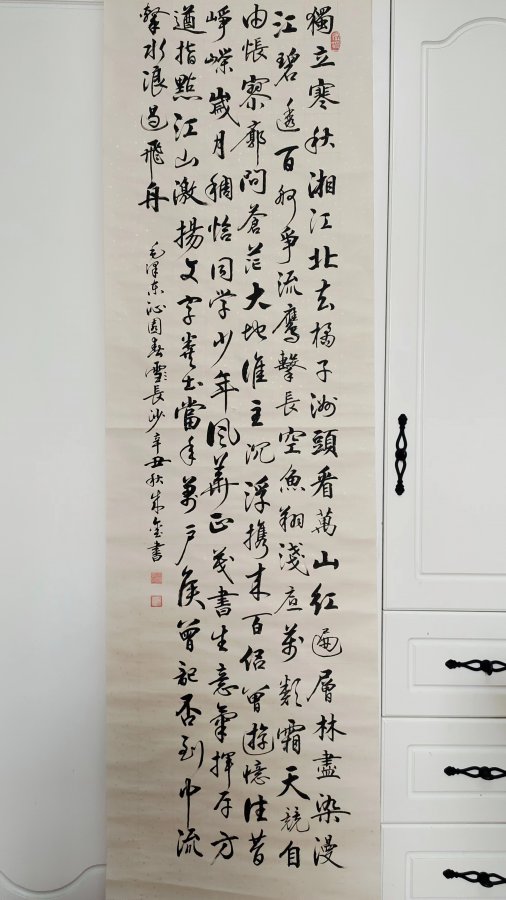 獨立寒秋湘江北去橘子洲頭看萬山紅遍層林盡染漫
江碧透百舸爭流鷹擊長空魚翔淺底萬類霜天競自
由悵寥廓問蒼茫大地誰主沉浮携来百侣曾遊憶往昔
崢嶸崴月稠恰同学少年風華正茂書生意氣揮斥方
遒指點江山激揚文字糞土當年萬户侯曾記否到中流
擊水浪遏飛舟
毛澤東沁園春雪長沙辛丑秋書